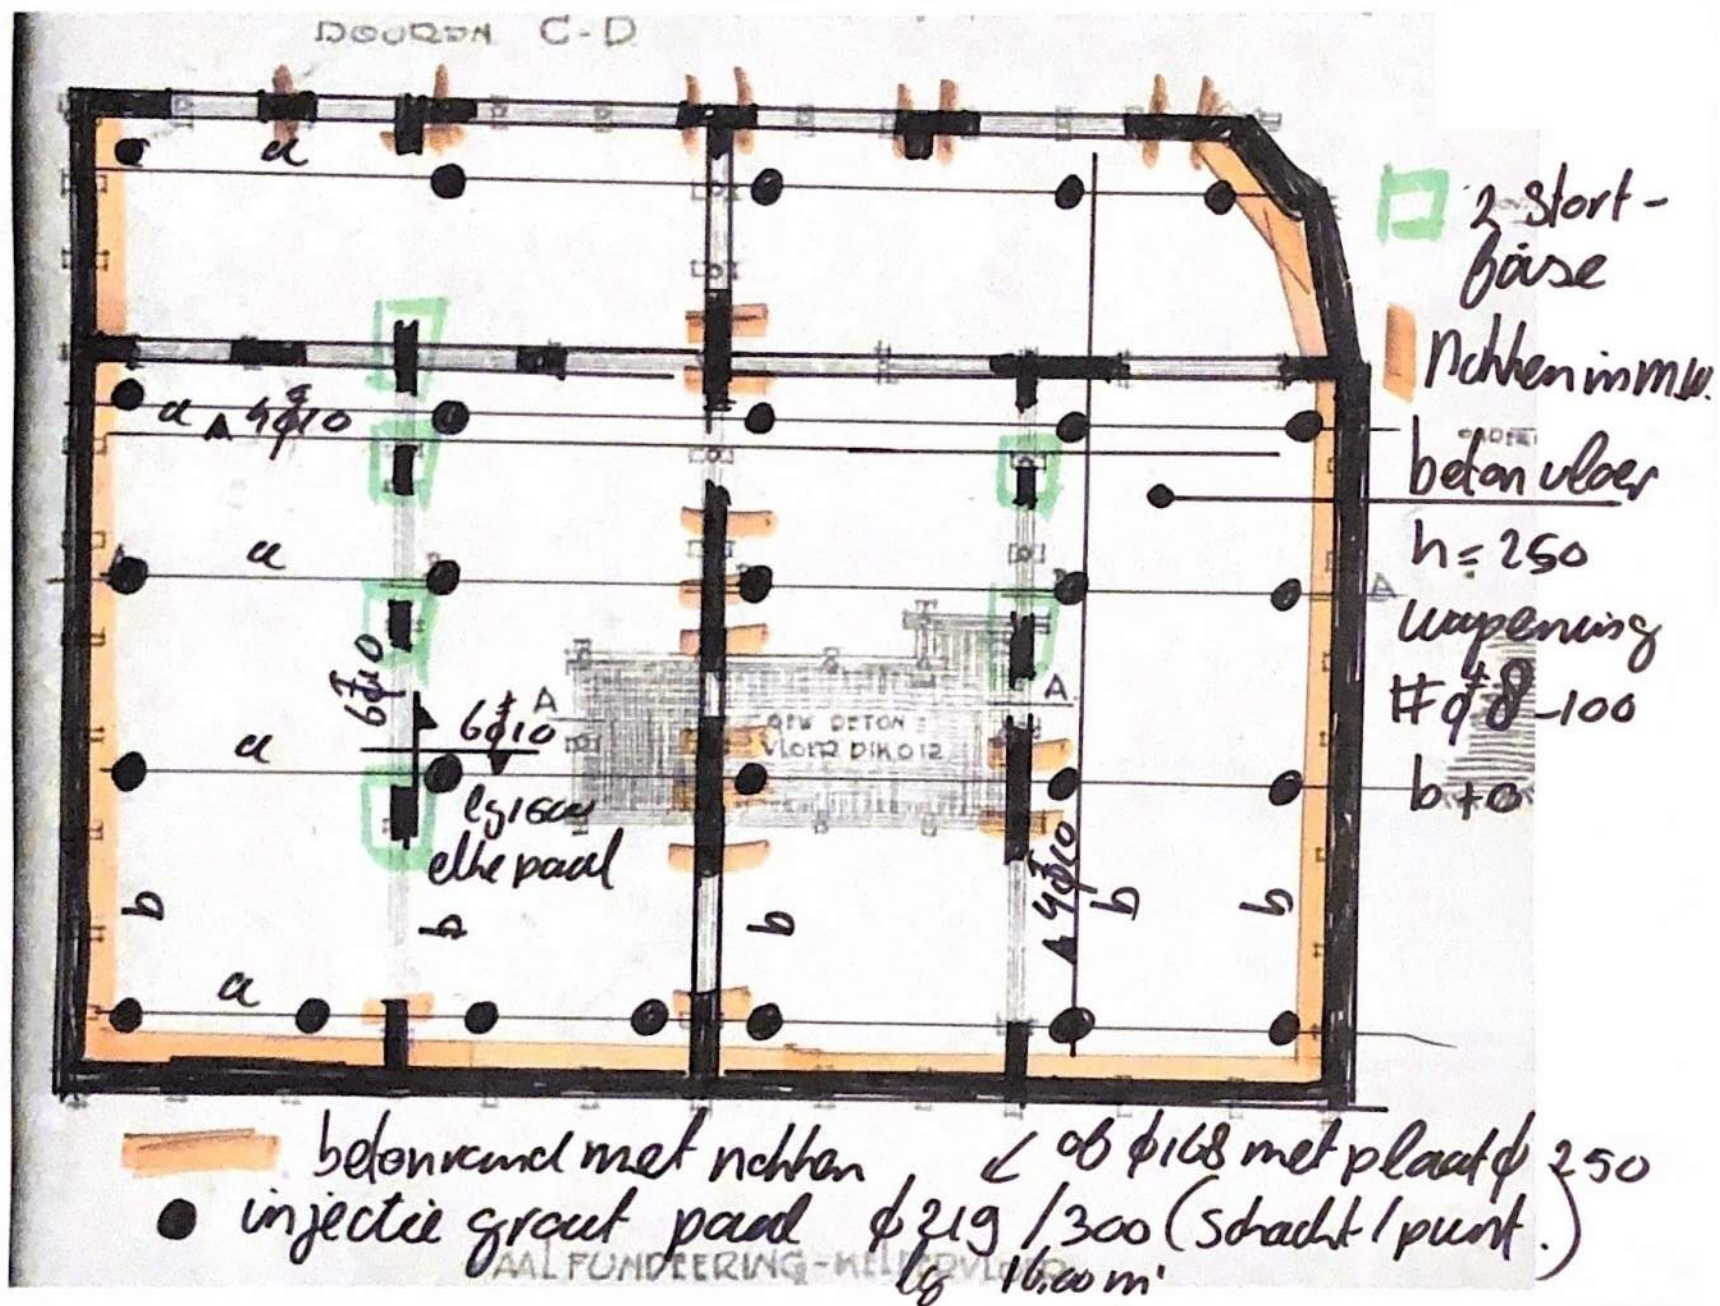 DOORSN C-D
a
2 stort-
fase
Nchhen in m.w.
a 4ϕ10
beton vloer
h = 250
a
wapening
#ϕ8-100
b+o
6ϕ10
A
6ϕ10
A
GEW BETON
VLOER DIK 0 12
A
a
lg 1600
elke paal
4ϕ10
b
b
b
b
b
a
betonrand met nchhen
↙ ob ϕ168 met plaat ϕ 250
● injectie grout paal ϕ219/300 (schacht/punt.)
PAALFUNDEERING-KELDERVLOER
lg 16.00 m'